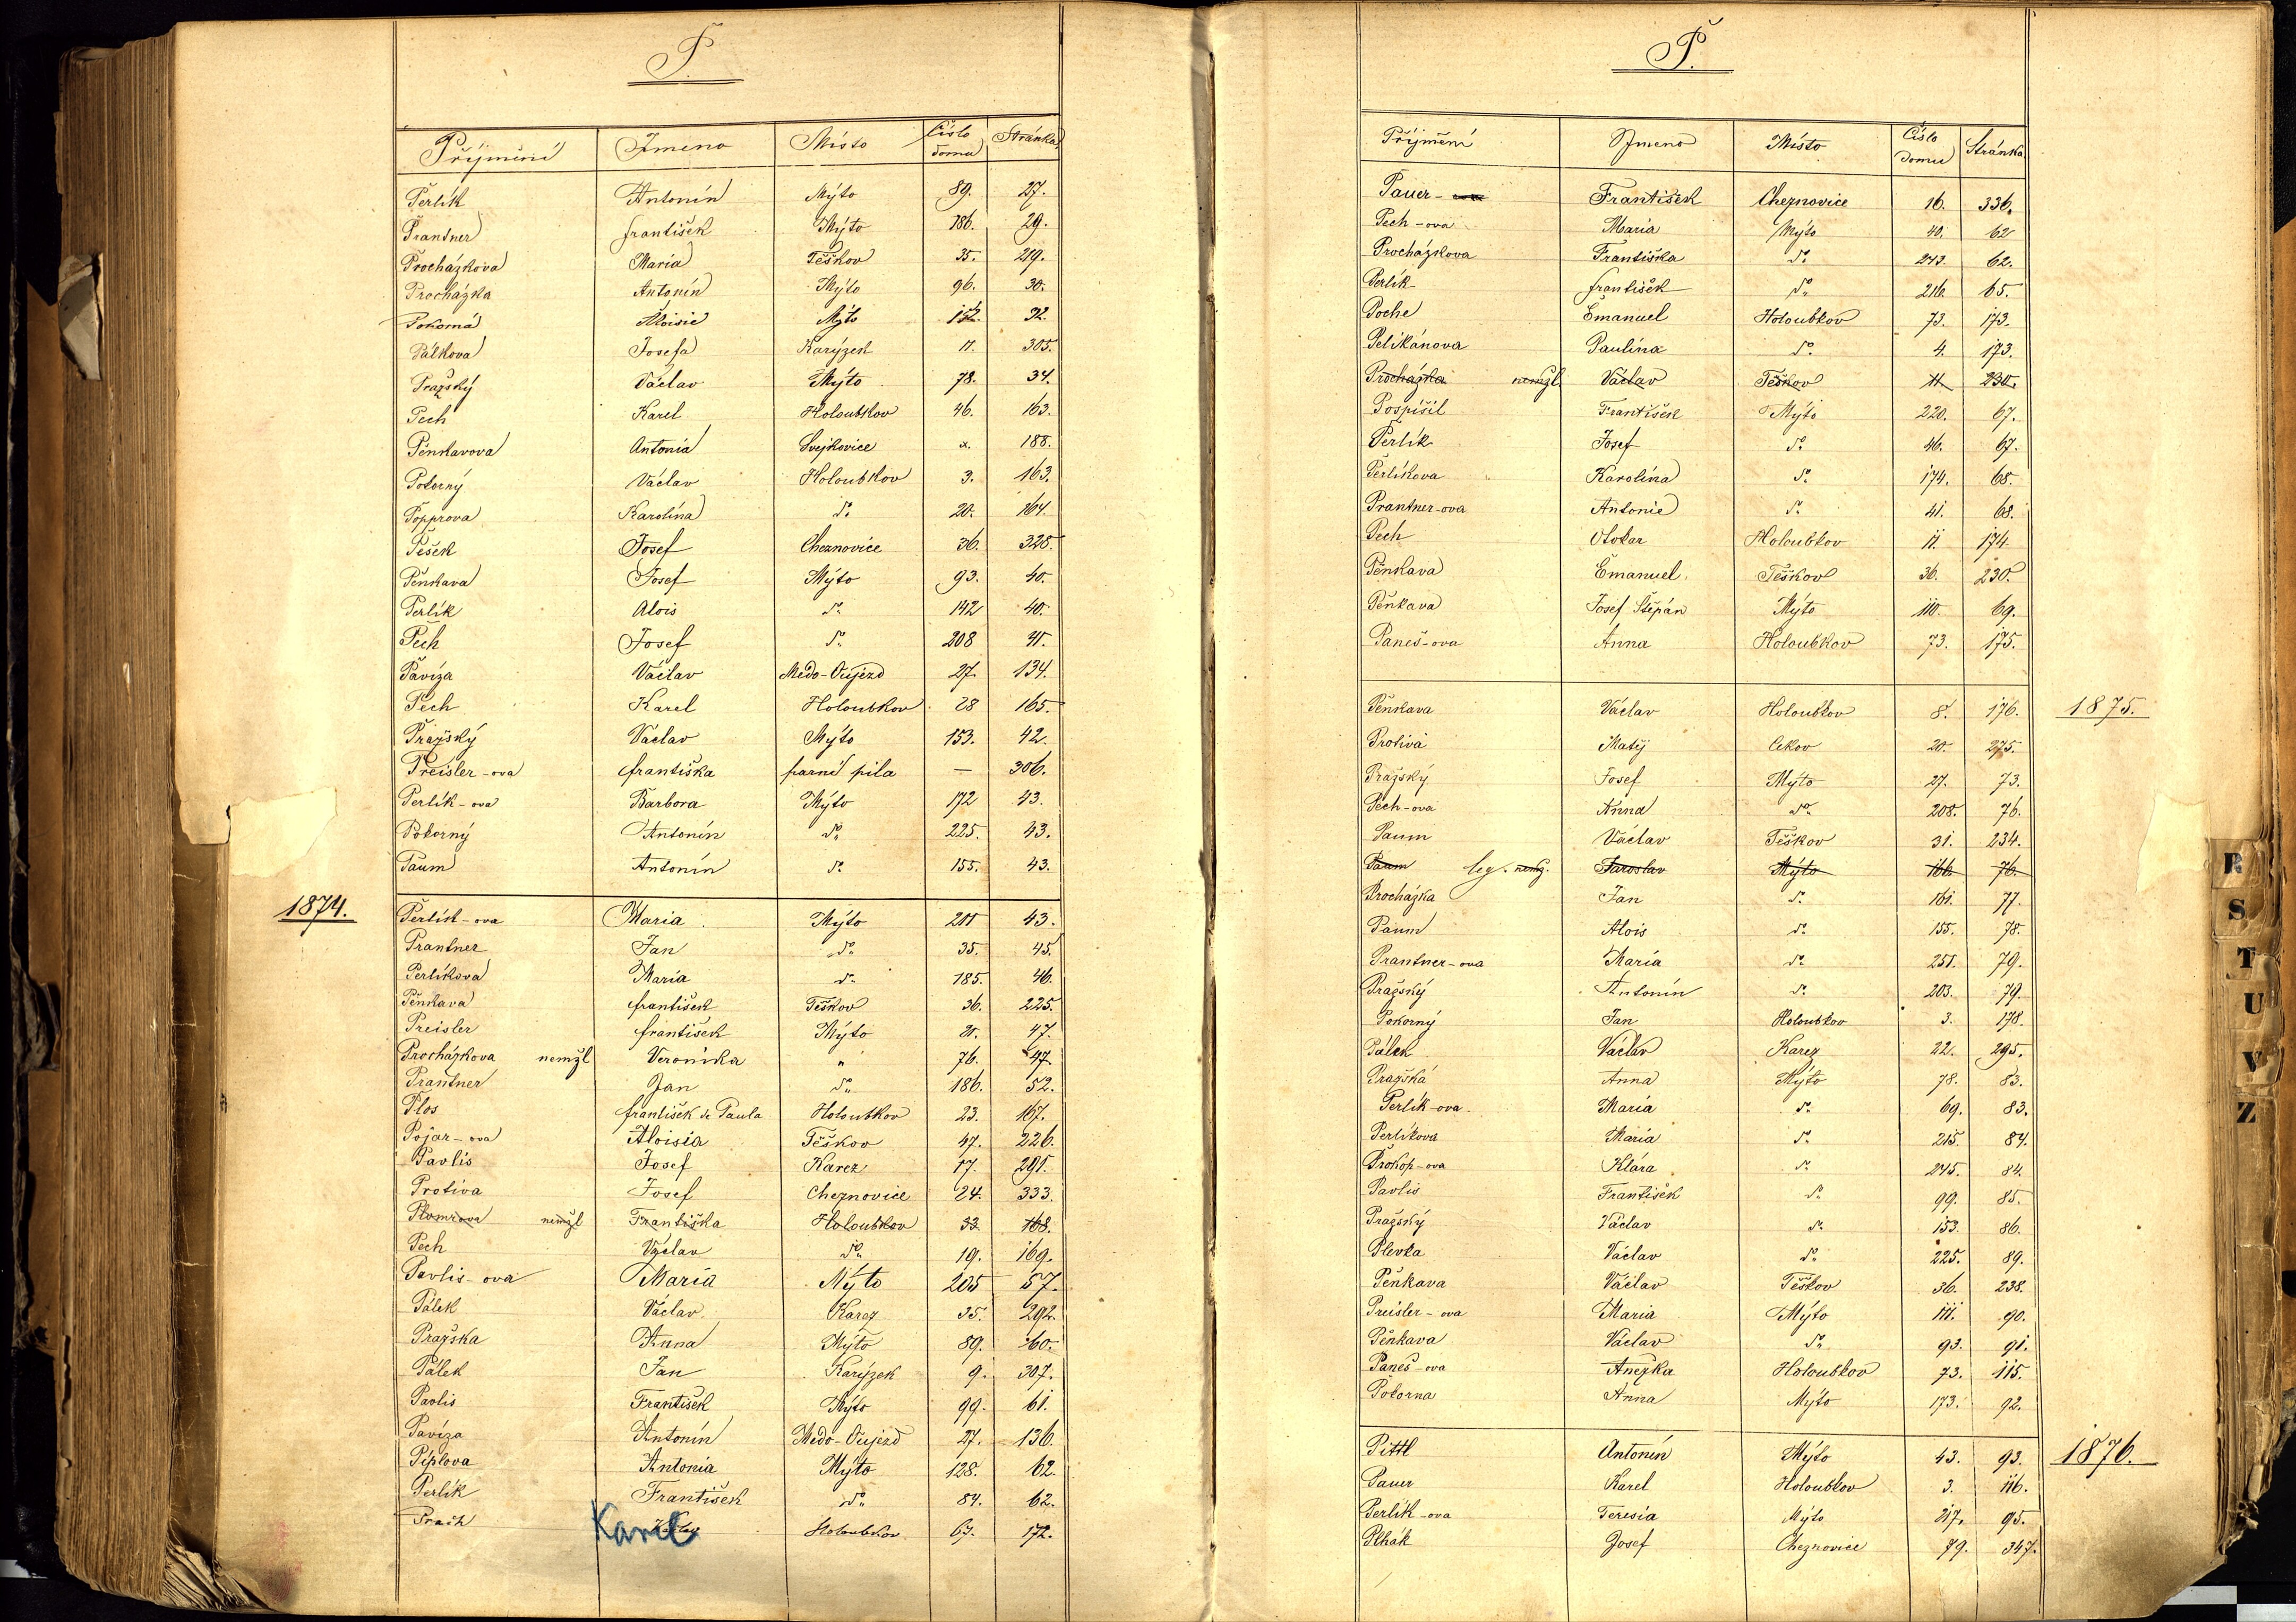 P.
Příjmění Jméno Místo Číslo domu Stránka
Perlík Antonín Mýto 89. 27.
Prantner františek Mýto 186. 29.
Procházkova Maria Těškov 35. 219.
Procházka Antonín Mýto 96. 30.
Pokorná Aloisie Mýto 32.
Pálkova Josefa Karýzek 11. 305.
Pražský Václav Mýto 78. 34.
Pech Karel Holoubkov 46. 163.
Pěnkavova Antonia Svejkovice x. 188.
Pokorný Václav Holoubkov 3. 163.
Popprova Karolína do. 20. 164.
Pešek Josef Cheznovice 36. 328.
Pěnkava Josef Mýto 93. 40.
Perlík Alois do. 142 40.
Pech Josef do. 208 41.
Pavíza Václav Medo-Oujezd 27. 134.
Pech Karel Holoubkov 28 165.
Pražský Václav Mýto 153. 42.
Preisler-ova františka parní pila — 306.
Perlík-ova Barbora Mýto 172 43.
Pokorný Antonín do. 225. 43.
Paum Antonín do. 155. 43.
1874.
Perlík-ova Maria Mýto 201 43.
Prantner Jan do. 35. 45.
Perlíkova Maria do. 185. 46.
Pěnkava františek Těškov 36. 225.
Preisler františek Mýto 47.
Procházkova nemžl Veronika " 76. 47.
Prantner Jan do. 186. 52.
Plos františek de Paula Holoubkov 23. 167.
Pojar-ova Aloisia Těškov 47. 226.
Pavlis Josef Karez 17. 291.
Protiva Josef Cheznovice 24. 333.
nemžl Františka Holoubkov 33. 168.
Pech Václav do. 19. 169.
Pavlis-ova Maria Mýto 205 57.
Pálek Václav Karez 35. 292.
Pražska Anna Mýto 89. 60.
Pálek Jan Karýzek 9. 307.
Pavlis František Mýto 99. 61.
Pavíza Antonín Medo-Oujezd 27. 136.
Píplova Antonia Mýto 128. 62.
Perlík František do. 84. 62.
Karel Holoubkov 67. 172.
P.
Příjmění Jméno Místo Číslo domu Stránka
Pauer- František Cheznovice 16. 336.
Pech-ova Maria Mýto 40. 62
Procházkova Františka do. 243. 62.
Perlík františek do. 216. 65.
Poche Emanuel Holoubkov 73. 173.
Pelikánova Paulina do. 4. 173.
Procházka nemžl Václav Těškov 11 230.
Pospíšil František Mýto 220. 67.
Perlík Josef do. 46. 67.
Perlíkova Karolína do. 174. 68.
Prantner-ova Antonie do. 41. 68.
Pech Otokar Holoubkov 11. 174.
Pěnkava Emanuel Těškov 36. 230.
Pěnkava Josef Štěpán Mýto 110. 69.
Paneš-ova Anna Holoubkov 73. 175.
Pěnkava Václav Holoubkov 8. 176. 1875.
Protiva Matěj Cekov 20. 275.
Pražský Josef Mýto 27. 73.
Pech-ova Anna do. 208. 76.
Paum Václav Těškov 31. 234.
Paum leg. nemž. Jaroslav Mýto 166 76.
Procházka Jan do. 161. 77.
Paum Alois do. 155. 78.
Prantner-ova Maria do. 251. 79.
Pražský Antonín do. 203. 79.
Pokorný Jan Holoubkov 3. 178.
Pálek Václav Karez 22. 295.
Pražská Anna Mýto 78. 83.
Perlík-ova Maria do. 69. 83.
Perlíkova Maria do. 215. 84.
Prokop-ova Klára do. 245. 84.
Pavlis František do. 99. 85.
Pražský Václav do. 153. 86.
Plevka Václav do. 225. 89.
Pěnkava Václav Těškov 36. 238.
Preisler-ova Maria Mýto 111. 90.
Pěnkava Václav do. 93. 91.
Paneš-ova Anežka Holoubkov 73. 115.
Pokorna Anna Mýto 173. 92.
Pittl Antonín Mýto 43. 93. 1876.
Pauer Karel Holoubkov 3. 116.
Perlík-ova Teresia Mýto 217. 95.
Plhák Josef Cheznovice 79. 347.
R
S
T
U
V
Z